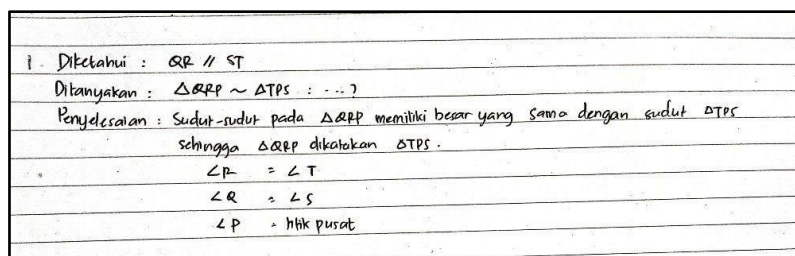 1. Diketahui : QR // ST
Ditanyakan : ΔQRP ~ ΔTPS : ...?
Penyelesaian : Sudut-sudut pada ΔQRP memiliki besar yang sama dengan sudut ΔTPS
sehingga ΔQRP dikatakan ΔTPS.
∠R = ∠T
∠Q = ∠S
∠P = titik pusat